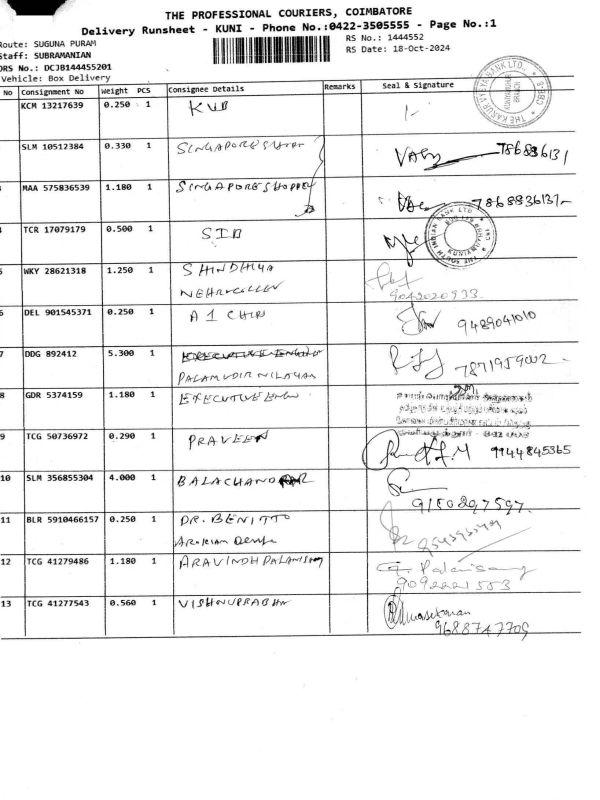 THE PROFESSIONAL COURIERS, COIMBATORE
Delivery Runsheet - KUNI - Phone No.:0422-3505555 - Page No.:1
Route: SUGUNA PURAM
RS No.: 1444552
Staff: SUBRAMANIAN
RS Date: 18-Oct-2024
DRS No.: DCJB144455201
Vehicle: Box Delivery
No Consignment No Weight PCS Consignee Details Remarks Seal & Signature
KCM 13217639 0.250 1 KVB
THE KARUR VYSYA BANK LTD.
BRANCH
SLM 10512384 0.330 1 SINGAPORE SHOPP 7868836131
MAA 575836539 1.180 1 SINGAPORE SHOPPEE 7868836131
TCR 17079179 0.500 1 SIB
THE SOUTH INDIAN BANK LTD
5 WKY 28621318 1.250 1 SHINDHIYA
NEHRU COLLEGE
9042020933
6 DEL 901545371 0.250 1 A1 CHIPS 9489041010
7 DDG 892412 5.300 1
PALAMUDIR NILAYAM
7871959002
8 GDR 5374159 1.180 1 EXECUTIVE ENGR
9 TCG 50736972 0.290 1 PRAVEEN 9944845365
10 SLM 356855304 4.000 1 BALACHANDAR
9150297597
11 BLR 5910466157 0.250 1 DR. BENITTO
12 TCG 41279486 1.180 1 ARAVINDH PALANISAMY
G. Palanisamy
9092221553
13 TCG 41277543 0.560 1 VISHNUPRABHA
9688747709